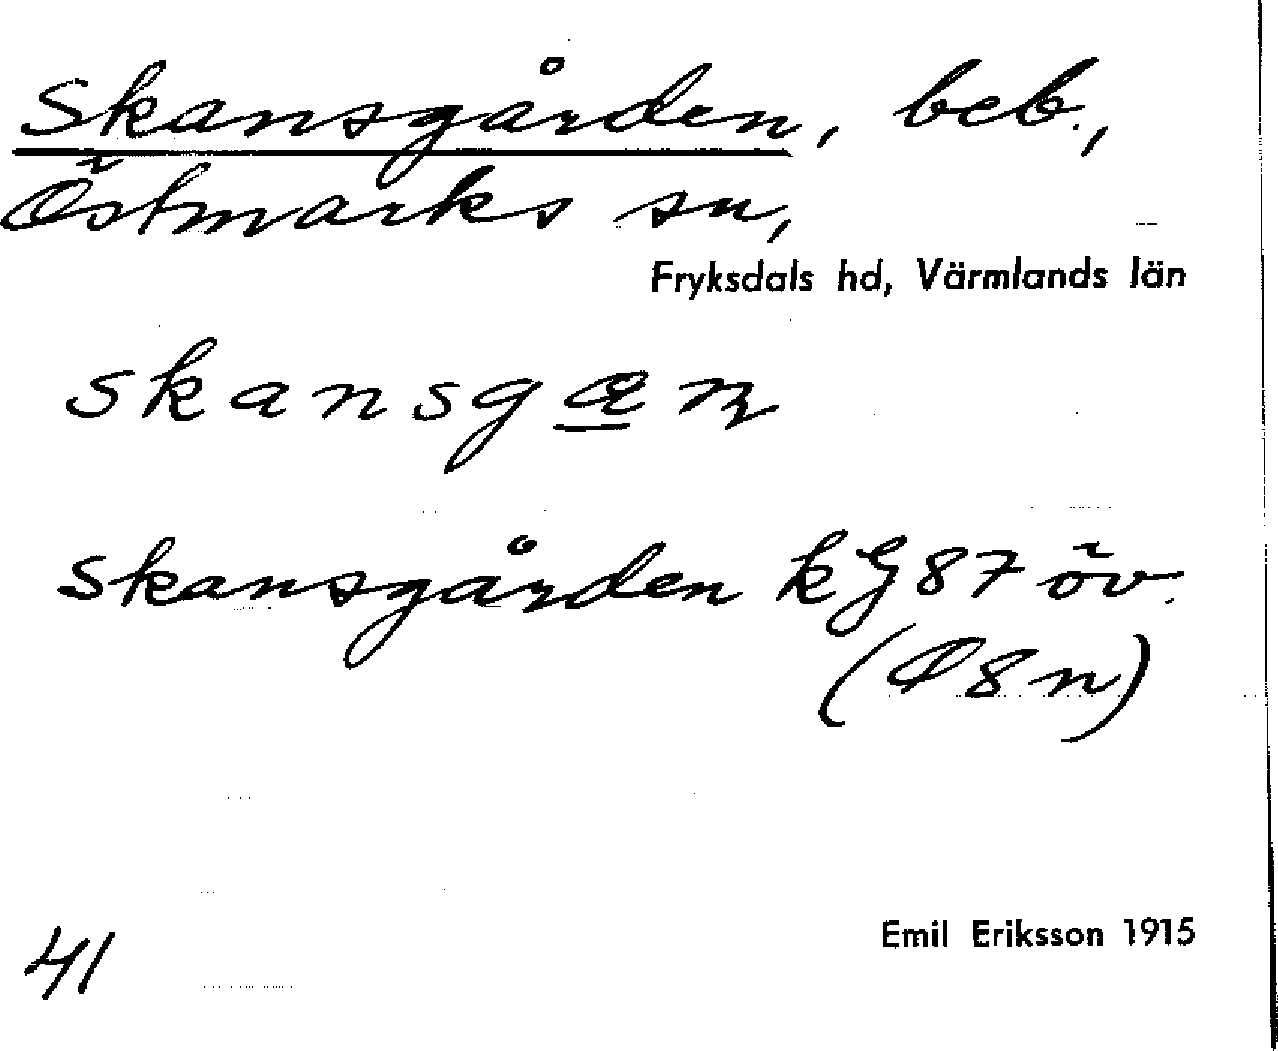 Skansgården, beb.,
Östmarks sn,
Fryksdals hd, Värmlands län
skansgæɳ
Skansgården kG 87 öv.
(Ö 8 n)
41
Emil Eriksson 1915